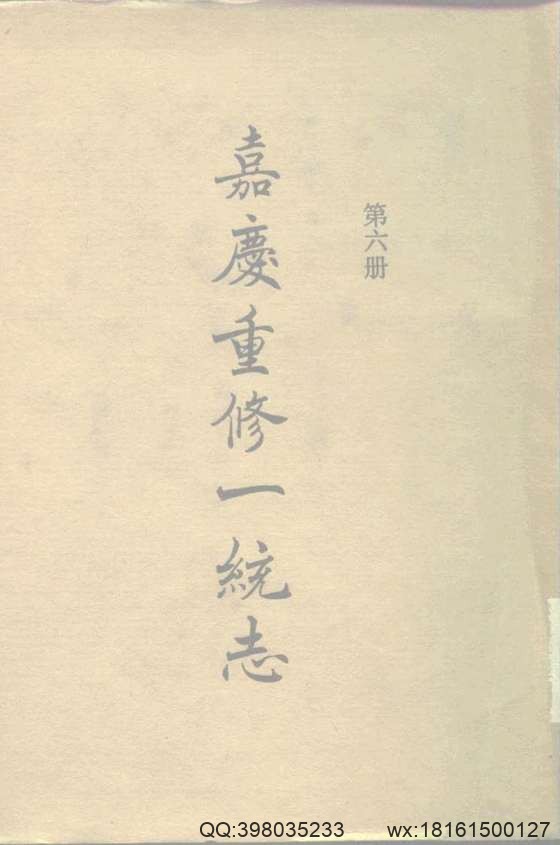 第六册
嘉慶重修一統志
QQ:398035233 wx:18161500127